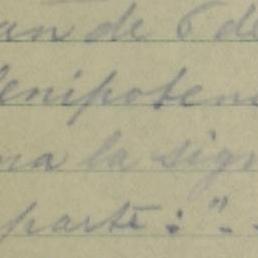 an de 6 de
lenipoten
na la sig
parte : ".